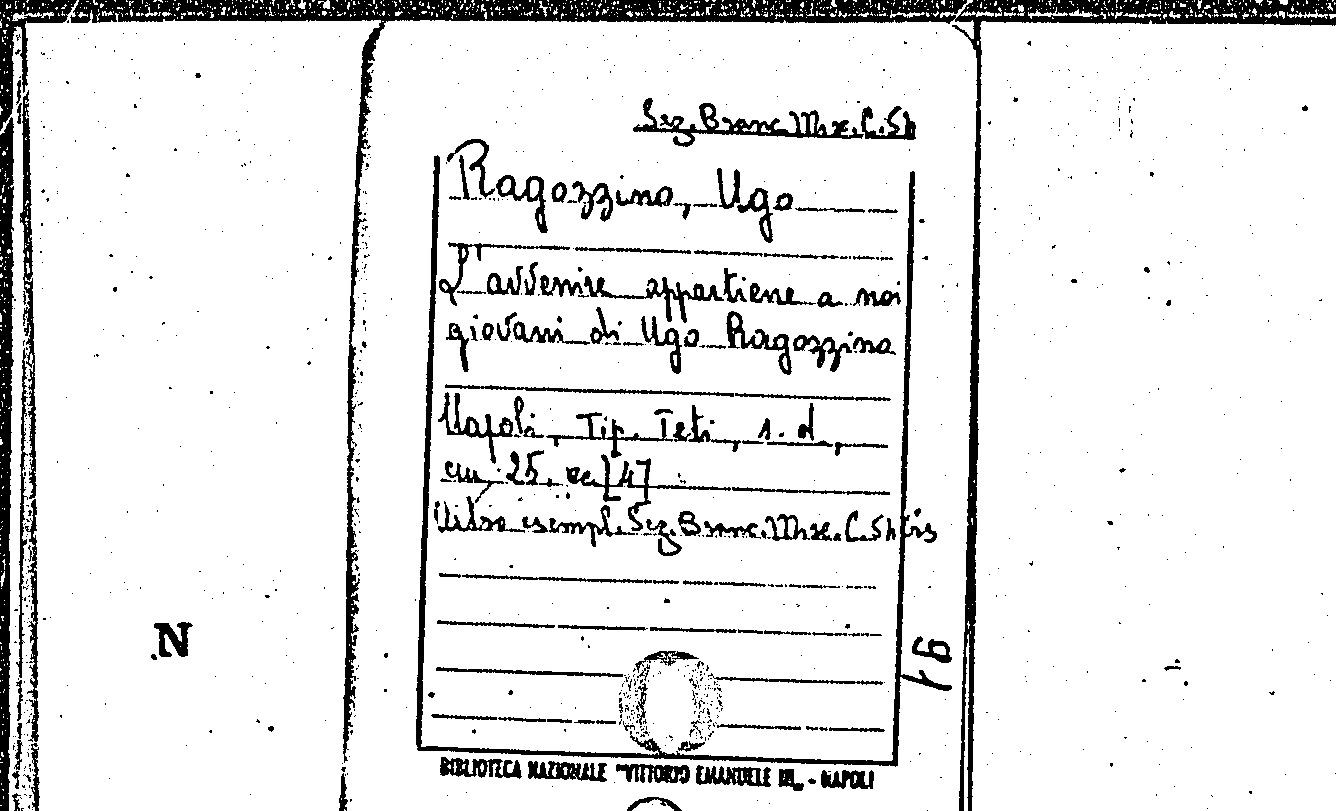 Sez. Branc. Misc. C. 5h
Ragozzino, Ugo
L'avvenire appartiene a noi
giovani di Ugo Ragozzino
Napoli, Tip. Teti, s. d.,
cm 25, cc. [4]
Altro esempl. Sez. Branc. Misc. C. 5h bis
94
N
BIBLIOTECA NAZIONALE "VITTORIO EMANUELE III„ - NAPOLI